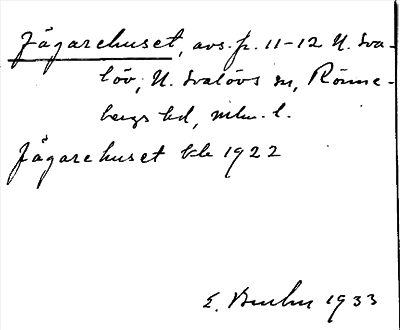 Jägarehuset, avs. fr. 11-12 N. Sva-
löv, N. Svalövs sn, Rönne-
bergs hd, mlm. l.
Jägarehuset kb 1922
E. 1933